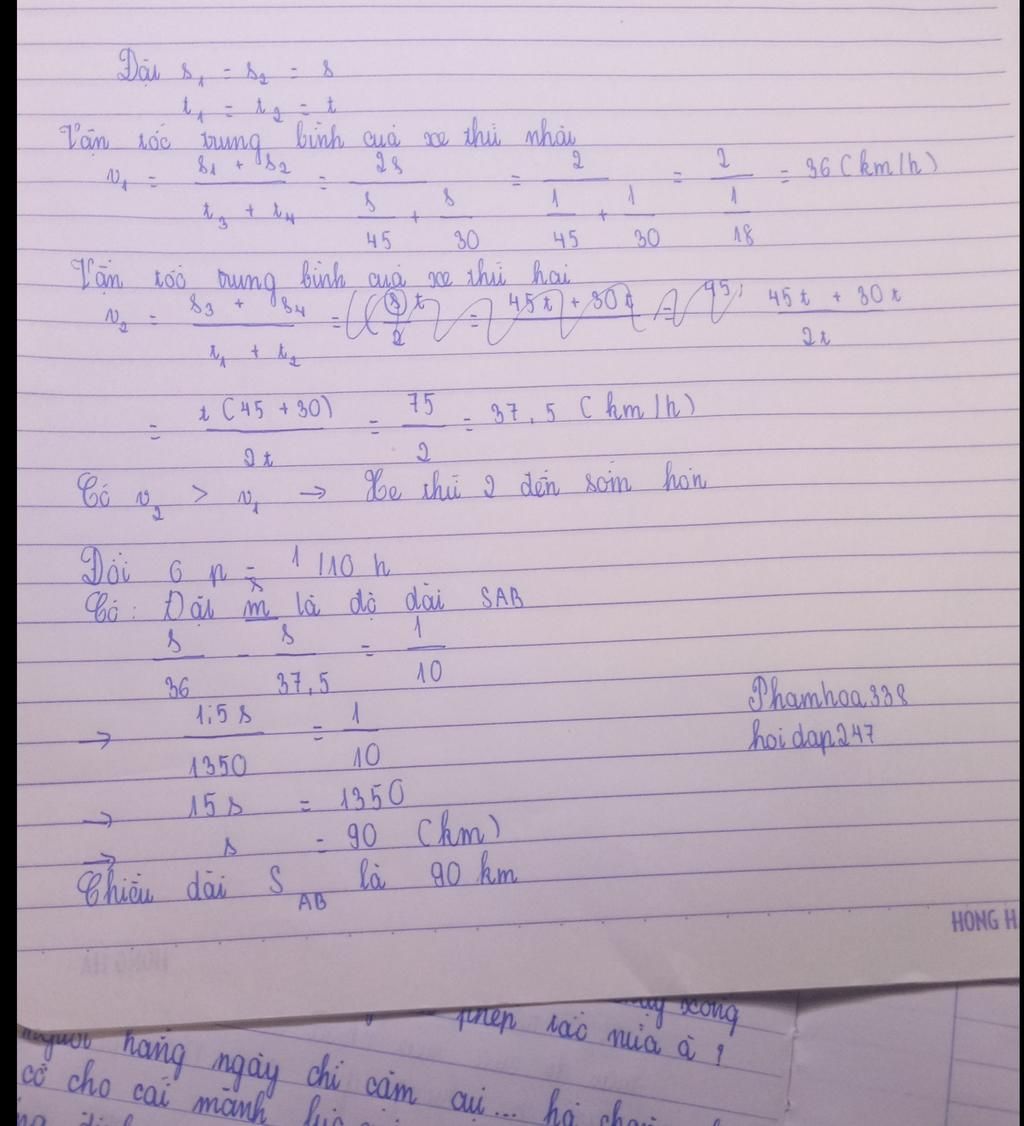 Đặt s₁ = s₂ = s
t₁ = t₂ = t
Vận tốc trung bình của xe thứ nhất
v₁ = (s₁ + s₂)/(t₃ + t₄) = 2s/(s/45 + s/30) = 2/(1/45 + 1/30) = 2/(1/18) = 36 (km/h)
Vận tốc trung bình của xe thứ hai
v₂ = (s₃ + s₄)/(t₁ + t₂) = (45t + 30t)/2t
= t(45 + 30)/2t = 75/2 = 37,5 (km/h)
Có v₂ > v₁ → Xe thứ 2 đến sớm hơn
Đổi 6 p = 1/10 h
Có : Đặt m là độ dài SAB
s/36 - s/37,5 = 1/10
→ 1,5s/1350 = 1/10
→ 15s = 1350
→ s = 90 (km)
Chiều dài S_AB là 90 km
Phamhoa338
hoidap247
HONG H
xong
phép tắc nữa à ?
người hàng ngày chỉ cắm cúi...
cơ cho cái mảnh